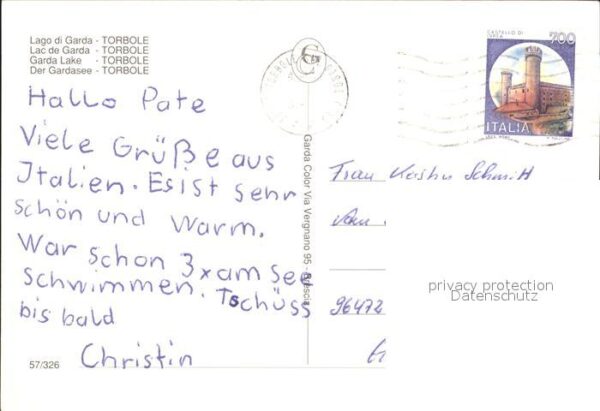 Lago di Garda - TORBOLE
Lac de Garda - TORBOLE
Garda Lake - TORBOLE
Der Gardasee - TORBOLE
Hallo Pate
Viele Grüße aus
Italien. Es ist sehr
schön und Warm.
War schon 3x am See
schwimmen. Tschüss
bis bald
Christin
57/326
Garda Color Via Vergnano 95 -
CASTELLO DI
IVREA
700
ITALIA
Frau Schmitt
96472
privacy protection
Datenschutz